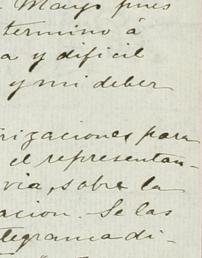 Mayo pues
termino á
a y dificil
y mi deber
rizaciones para
el representan-
via, sobre la
acion. Se las
telegrama di-